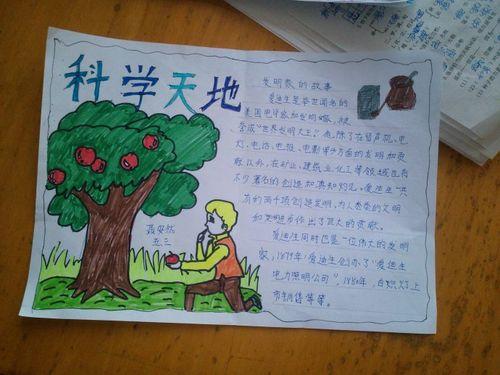 科学天地
发明家的故事
爱迪生是举世闻名的
美国电学家和发明家,被
誉为"世界发明大王"。他除了在留声机、电
灯、电话、电报、电影等方面的发明和贡
献以外,在矿业、建筑业、化工等领域也有
不少著名的创造和真知灼见。爱迪生一共
有约两千项创造发明,为人类的文明
和发明进步作出了巨大的贡献。
爱迪生同时也是一位伟大的发明
家,1879年,爱迪生创办了"爱迪生
电力照明公司",1880年,白炽灯上
市销售等等。
聂安然
五三